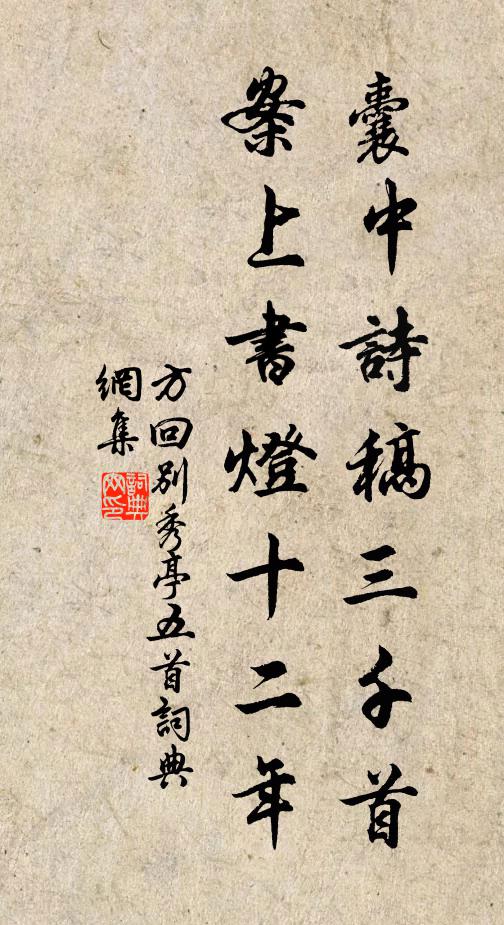 囊中詩稿三千首
案上書燈十二年
方回別秀亭五首詞典
網集
詞典網印